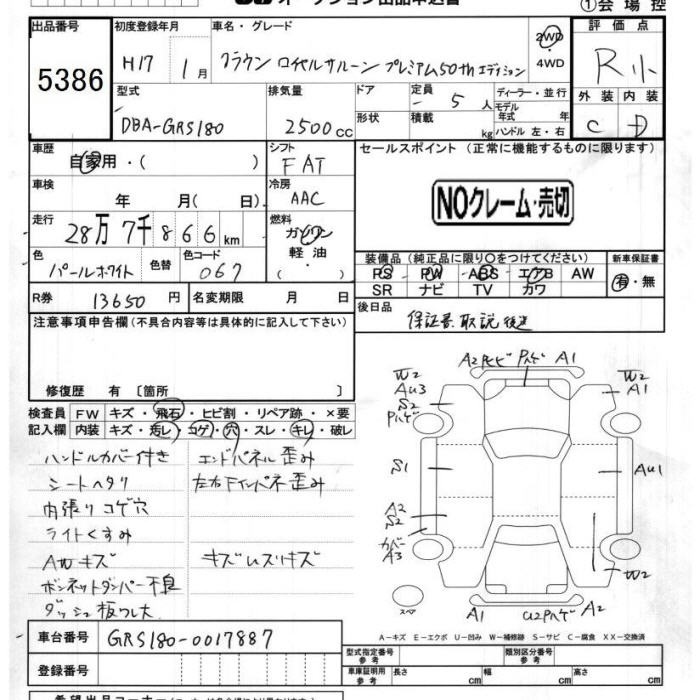 ①会場控
出品番号
5386
初度登録年月
H17 1月
車名・グレード
クラウン ロイヤルサルーン プレミアム50thエディション
2WD
・
4WD
評価点
R 小
外装 内装
C D
型式
DBA-GRS180
排気量
2500cc
ドア
形状
定員
5人
積載
kg
ディーラー・並行
モデル
年式 年
ハンドル 左・右
車歴
自家用・( )
シフト
FAT
セールスポイント (正常に機能するものに限ります)
車検
年 月( 日)
冷房
AAC
NOクレーム・売切
走行
28万7千866km
燃料
ガソリン
軽油
( ・ )
色
パールホワイト
色替
色コード
067
装備品(純正品に限り○をつけてください)
PS PW ABS エアB AW
SR ナビ TV カワ
新車保証書
有・無
R券
13650円
名変期限 月 日
後日品
保証書 取説 後送
注意事項申告欄(不具合内容等は具体的に記入して下さい)
修復歴 有 〔箇所 〕
検査員
記入欄
FW キズ・飛石・ヒビ割・リペア跡・×要
内装 キズ・汚レ・コゲ・穴・スレ・キレ・破レ
ハンドルカバー付き
エンドパネル歪み
シートヘタリ
左右下インパネ歪み
内張りコゲ穴
ライトくすみ
AWキズ
キズ凹スリキズ
ボンネットダンパー不良
ダッシュ板ワレ大
A2 ﾓﾋﾞ ハゲ A1
W2
Au3
S2
ハゲ
W2
A1
S1
Au1
A2
S2
カバー
A3
W2
スペア
A1
U2ハゲ A2
A−キズ E−エクボ U−凹み W−補修跡 S−サビ C−腐食 XX−交換済
車台番号
GRS180-0017887
登録番号
型式指定番号
参考
類別区分番号
参考
車庫証明用
参考
長さ cm
幅 cm
高さ cm